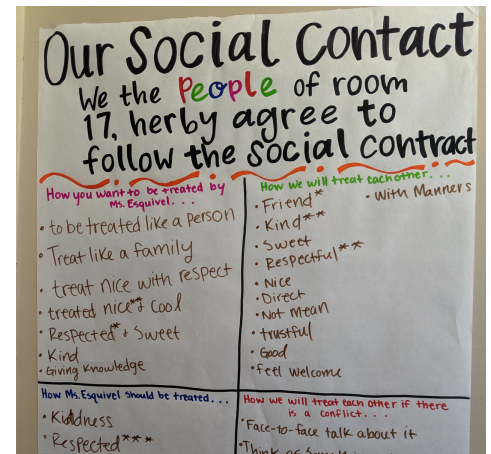 Our Social Contact
We the People of room
17, herby agree to
follow the social contract
How you want to be treated by
Ms. Esquivel...
• to be treated like a person
• Treat like a family
• treat nice with respect
• treated nice** & cool
• Respected* & Sweet
• Kind
• Giving Knowledge
How we will treat each other...
• Friend*
• With Manners
• Kind**
• Sweet
• Respectful**
• Nice
• Direct
• Not Mean
• trustful
• Good
• feel welcome
How Ms. Esquivel should be treated...
• Kindness
• Respected***
How we will treat each other if there
is a conflict...
• Face-to-face talk about it